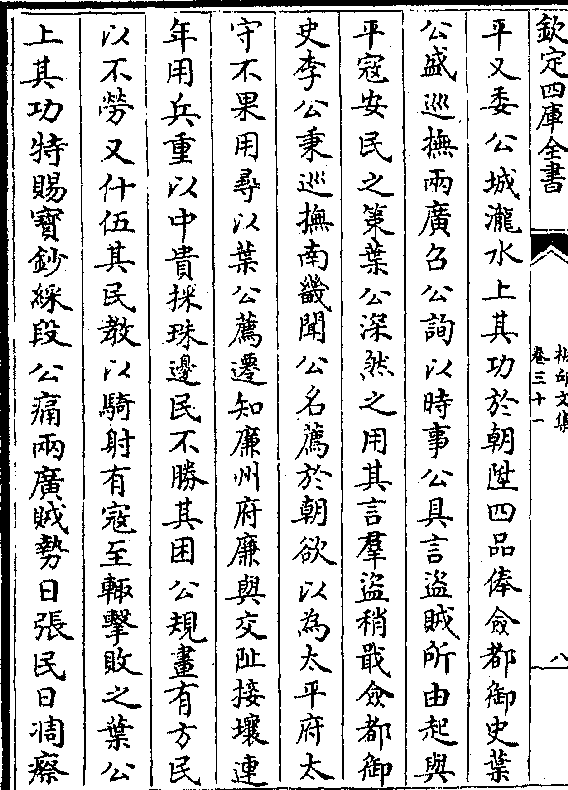 欽定四庫全書
卷三十一
八
平又委公城瀧水上其功於朝陞四品俸僉都御史葉
公盛巡撫兩廣召公詢以時事公具言盜賊所由起與
平寇安民之策葉公深然之用其言羣盜稍戢僉都御
史李公秉巡撫南畿聞公名薦於朝欲以為太平府太
守不果用尋以葉公薦遷知廉州府廉與交阯接壤連
年用兵重以中貴採珠邊民不勝其困公規畫有方民
以不勞又什伍其民教以騎射有寇至輒擊敗之葉公
上其功特賜寶鈔綵段公痛兩廣賊勢日張民日凋瘵